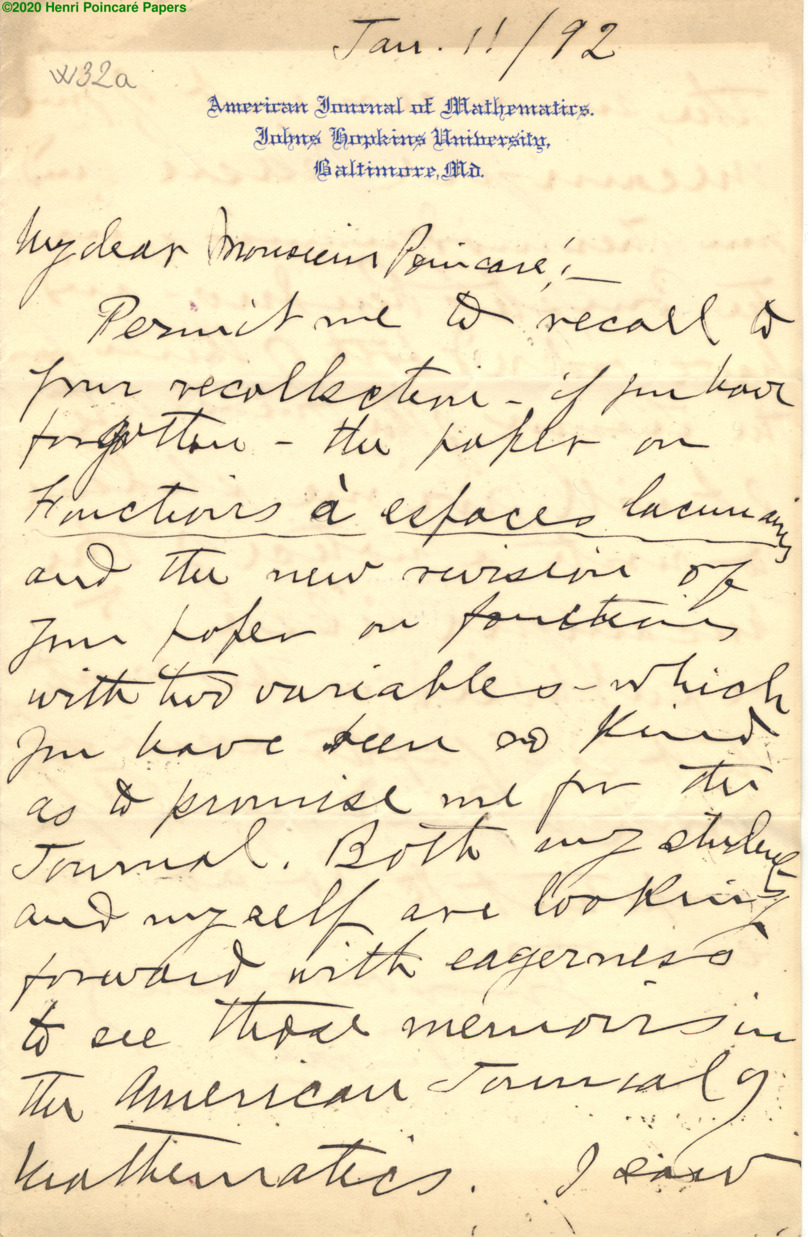 ©2020 Henri Poincaré Papers
Jan. 11/92
w32a
American Journal of Mathematics.
Johns Hopkins University,
Baltimore, Md.
My dear Monsieur Poincaré;—
Permit me to recall to
your recollection - if you have
forgotten - the paper on
Fonctions à espaces lacunaires
and the new revision of
your paper on fonctions
with two variables - which
you have been so kind
as to promise me for the
Journal. Both my students
and myself are looking
forward with eagerness
to see those memoirs in
the American Journal of
Mathematics. I said